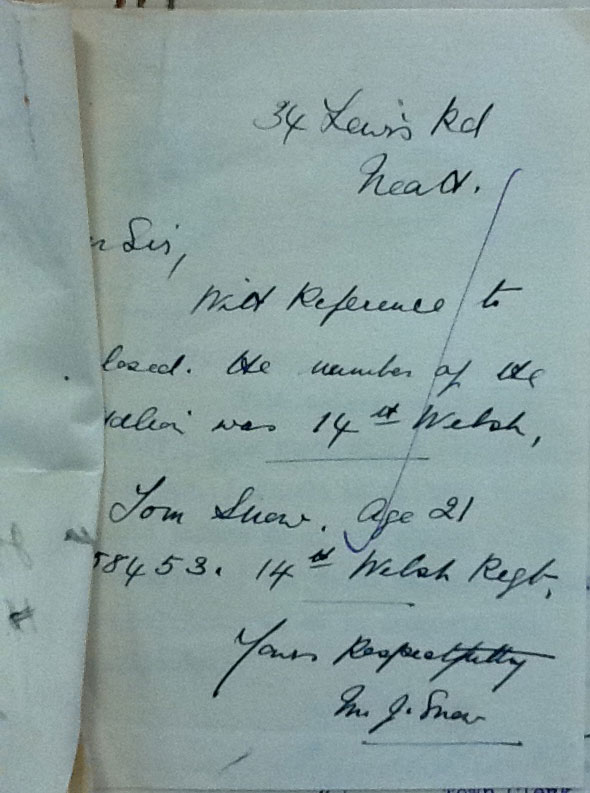 34 Lewis Rd
Neath.
r Sir,
With Reference to
losed. the number of the
talion was 14th Welsh,
Tom Snow. Age 21
58453. 14th Welsh Regt,
Yours Respectfully
J. Snow
Town Clerk